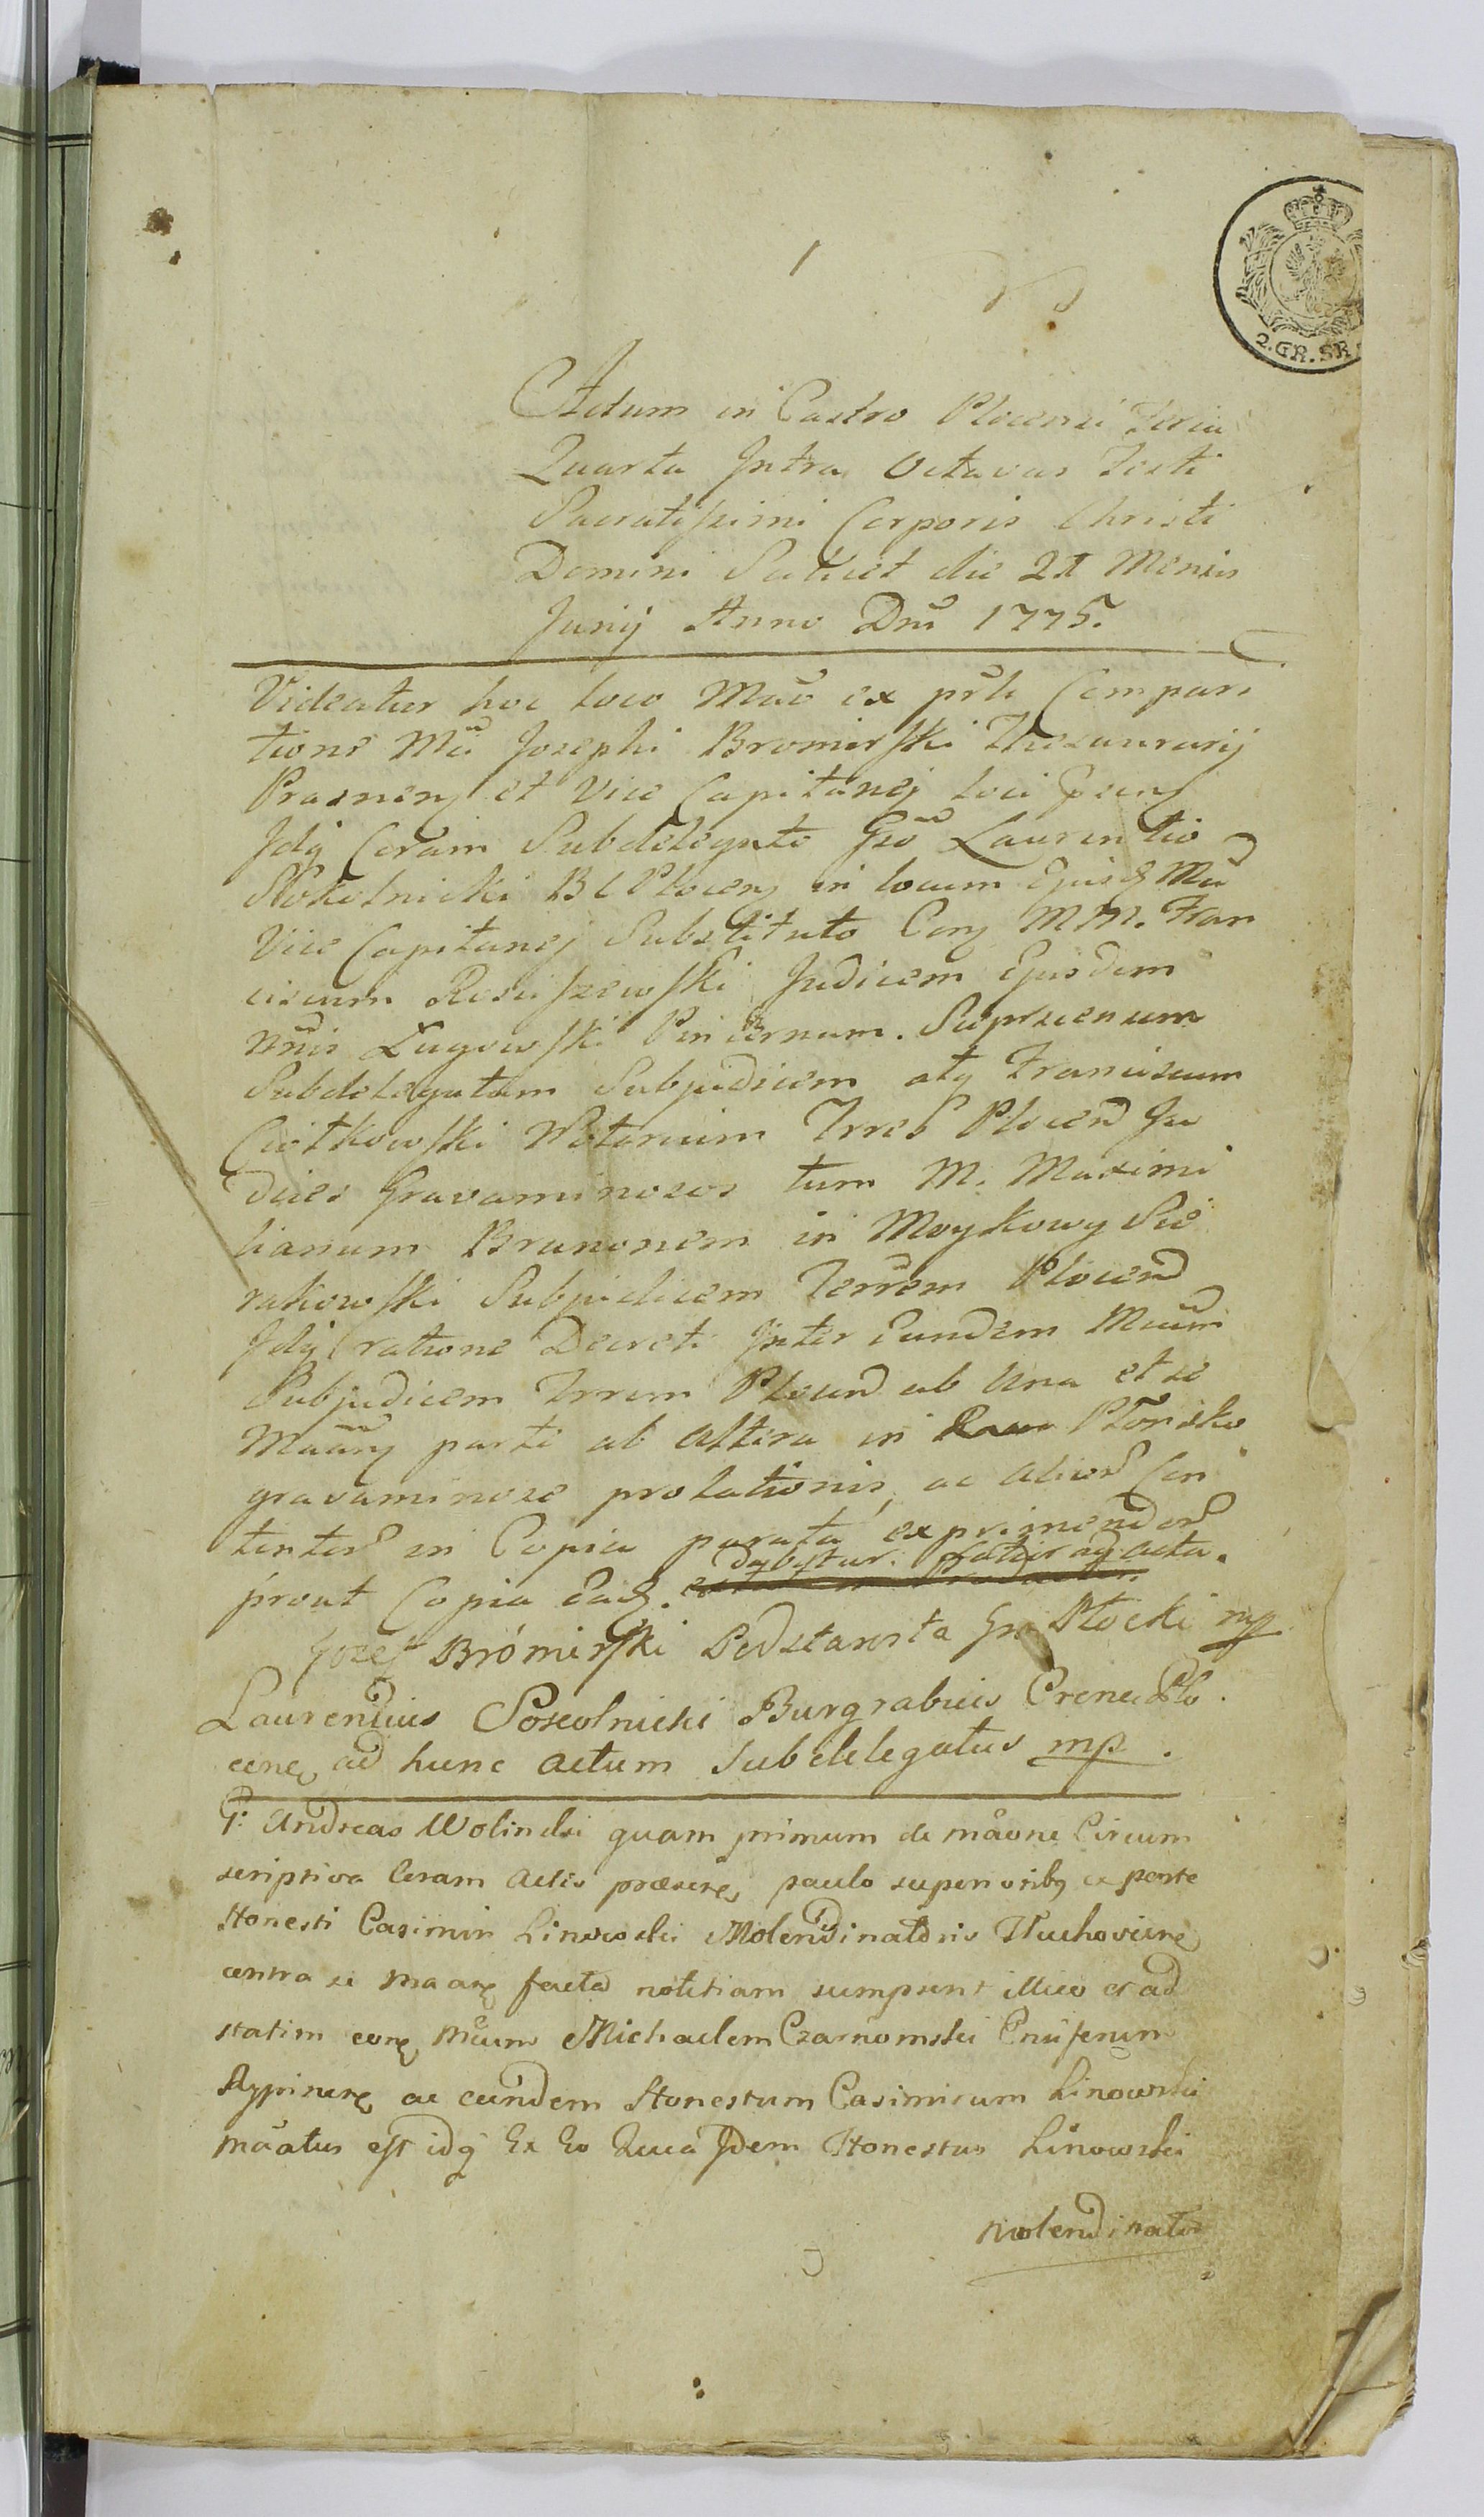 1
2.GR.SR
Actum in Castro Plocensi Feria
Quarta Intra Octavas Festi
Sacratissimi Corporis Christi
Domini Scilicet die 21 Mensis
Junij Anno Dni 1775.
Videatur hoc loco Mao ex prli Compari
tione Mci Josephi Bromirski Thesaurarij
Prasnen et Vice Capitanej loci
Idq Coram Subdelegato Gso Laurentio
Skokolnicki B C Plocen in locum Ejusq Mci
Vice Capitanej Substituto Con MM. Fran
ciscum Rosciszewski Judicem Ejusdem
Ługowski Pincernam. Sieprscensem
Subdelegatum Subjudicem atq Franciscum
Ciołkowski Notarium Trres Plocen Ju
dices Gravaminosos tum M. Maximi
lianum Brunonem in Moykowy Sie
rakowski Subjudicem Terrem Plocen
Idq ratione Decreti Inter Eundem Mcum
Subjudicem Trrem Plocen ab Una et se
Maan parte ab Altera in Płonsko
gravaminose prolationis, ac alior Con
tentor in Copia parata exprimendor
dabitur. fatetur ad acta.
prout Copia Eadq.
Jozef Brómirski Podstarosta Gr Płocki mp
Laurentius Soscolnicki Burgrabius Crene Plo
cene ad hunc actum Subdelegatus mp.
G: Andreas Wolinski quam primum de maone Circum
scriptiva Coram Actis præsene paulo superioribq ex parte
Honesti Casimiri Linowski Molendinatoris Kuchoviene
contra se maane facta notitiam sumpsit illico et ad
statim cone Mcum Michaelem Czarnomski Ensiferum
Rypinene ac eundem Honestum Casimirum Linowski
maatus est idq Ex Eo Quia Idem Honestus Linowski
molendinator